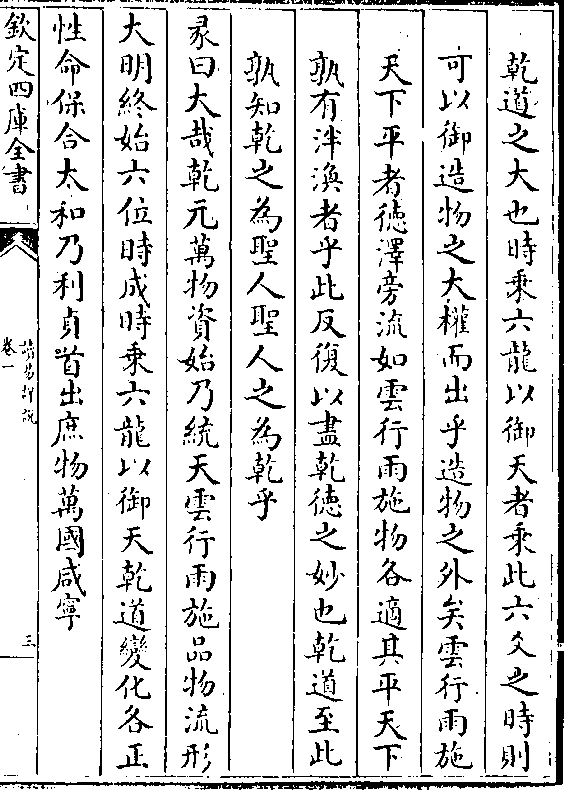 乾道之大也時乘六龍以御天者乘此六爻之時則
可以御造物之大權而出乎造物之外矣雲行雨施
天下平者徳澤旁流如雲行雨施物各適其平天下
孰有泮渙者乎此反復以盡乾徳之妙也乾道至此
孰知乾之為聖人聖人之為乾乎
彖曰大哉乾元萬物資始乃統天雲行雨施品物流形
大明終始六位時成時乘六龍以御天乾道變化各正
性命保合太和乃利貞首出庶物萬國咸寧
欽定四庫全書
讀易詳說
卷一
三